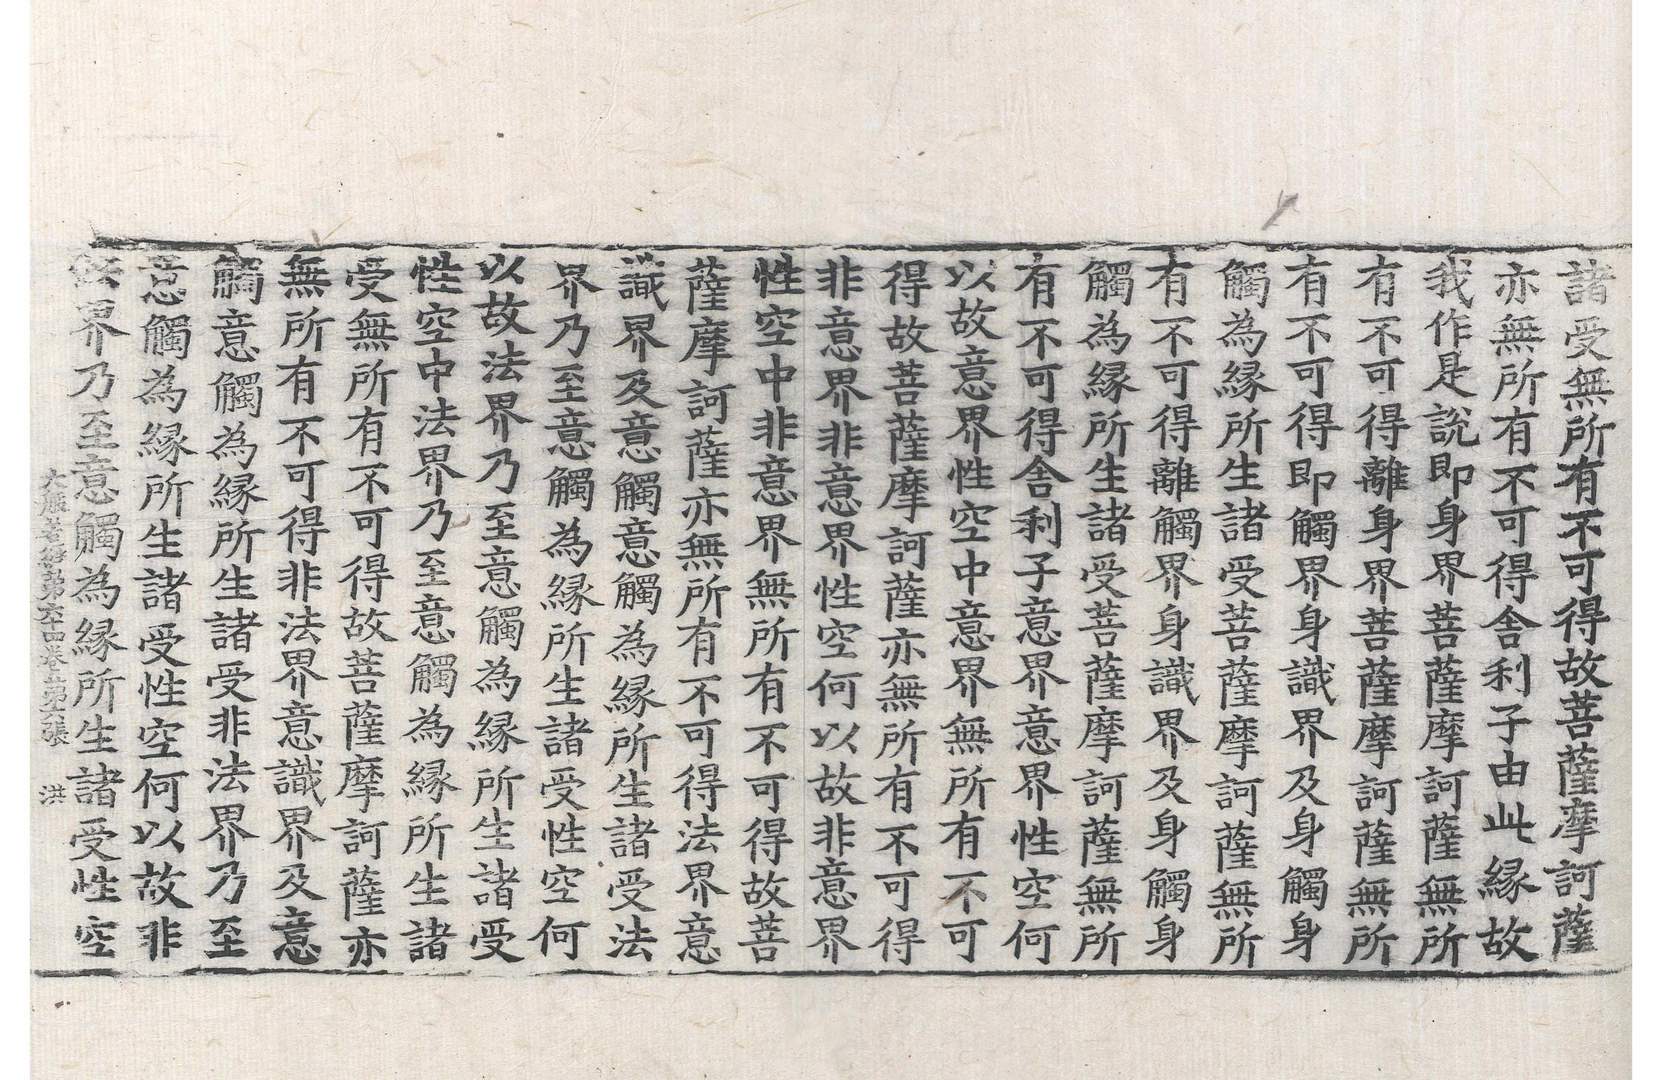 諸受無所有不可得故菩薩摩訶薩
亦無所有不可得舎利子由此縁故
我作是說即身界菩薩摩訶薩無所
有不可得離身界菩薩摩訶薩無所
有不可得即觸界身識界及身觸身
觸為縁所生諸受菩薩摩訶薩無所
有不可得離觸界身識界及身觸身
觸為縁所生諸受菩薩摩訶薩無所
有不可得舎利子意界意界性空何
以故意界性空中意界無所有不可
得故菩薩摩訶薩亦無所有不可得
非意界非意界性空何以故非意界
性空中非意界無所有不可得故菩
薩摩訶薩亦無所有不可得法界意
識界及意觸意觸為縁所生諸受法
界乃至意觸為縁所生諸受性空何
以故法界乃至意觸為縁所生諸受
性空中法界乃至意觸為縁所生諸
受無所有不可得故菩薩摩訶薩亦
無所有不可得非法界意識界及意
觸意觸為縁所生諸受非法界乃至
意觸為縁所生諸受性空何以故非
法界乃至意觸為縁所生諸受性空
大般若經第六十四卷 第張 洪